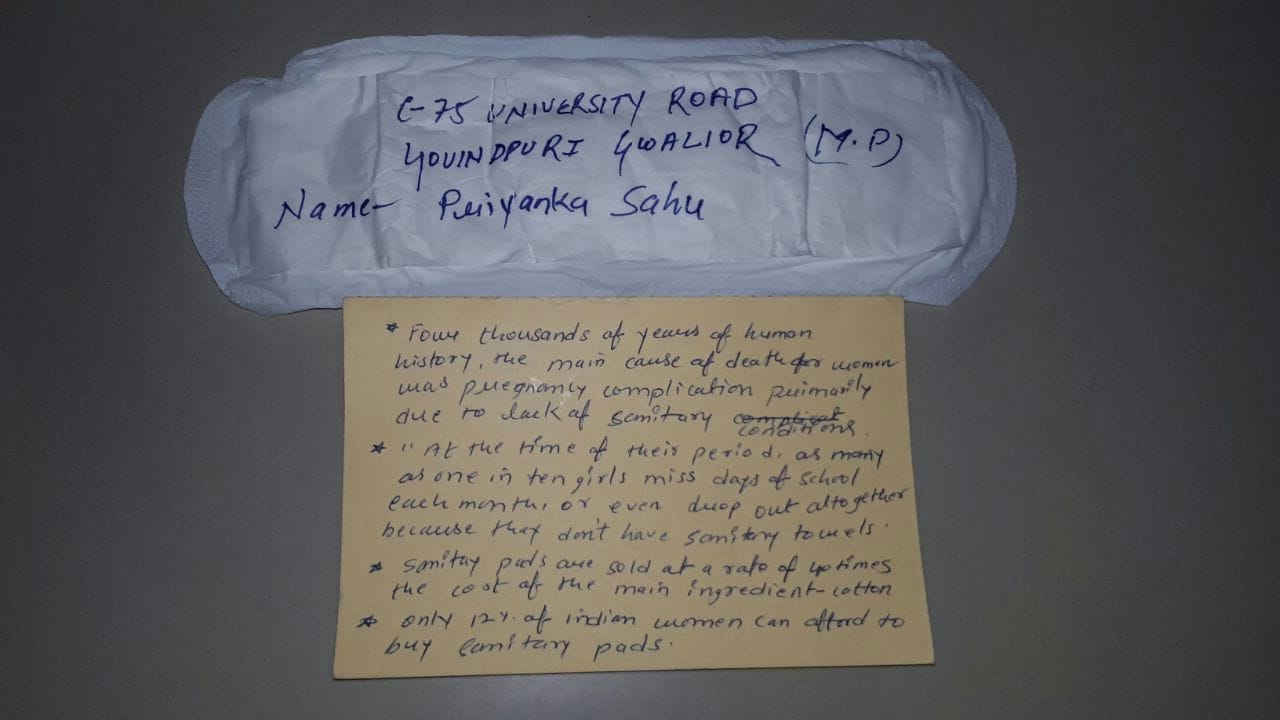 C-75 UNIVERSITY ROAD
GOVINDPURI GWALIOR (M.P)
Name- Priyanka Sahu
* Four thousands of years of human
history, the main cause of death for women
was pregnancy complication primarily
due to lack of sanitary complicat
conditions.
* "At the time of their period, as many
as one in ten girls miss days of school
each month, or even drop out altogether
because they don't have sanitary towels.
* Sanitay pads are sold at a rate of 40 times
the cost of the main ingredient-cotton
* only 12% of indian women can afford to
buy sanitary pads.